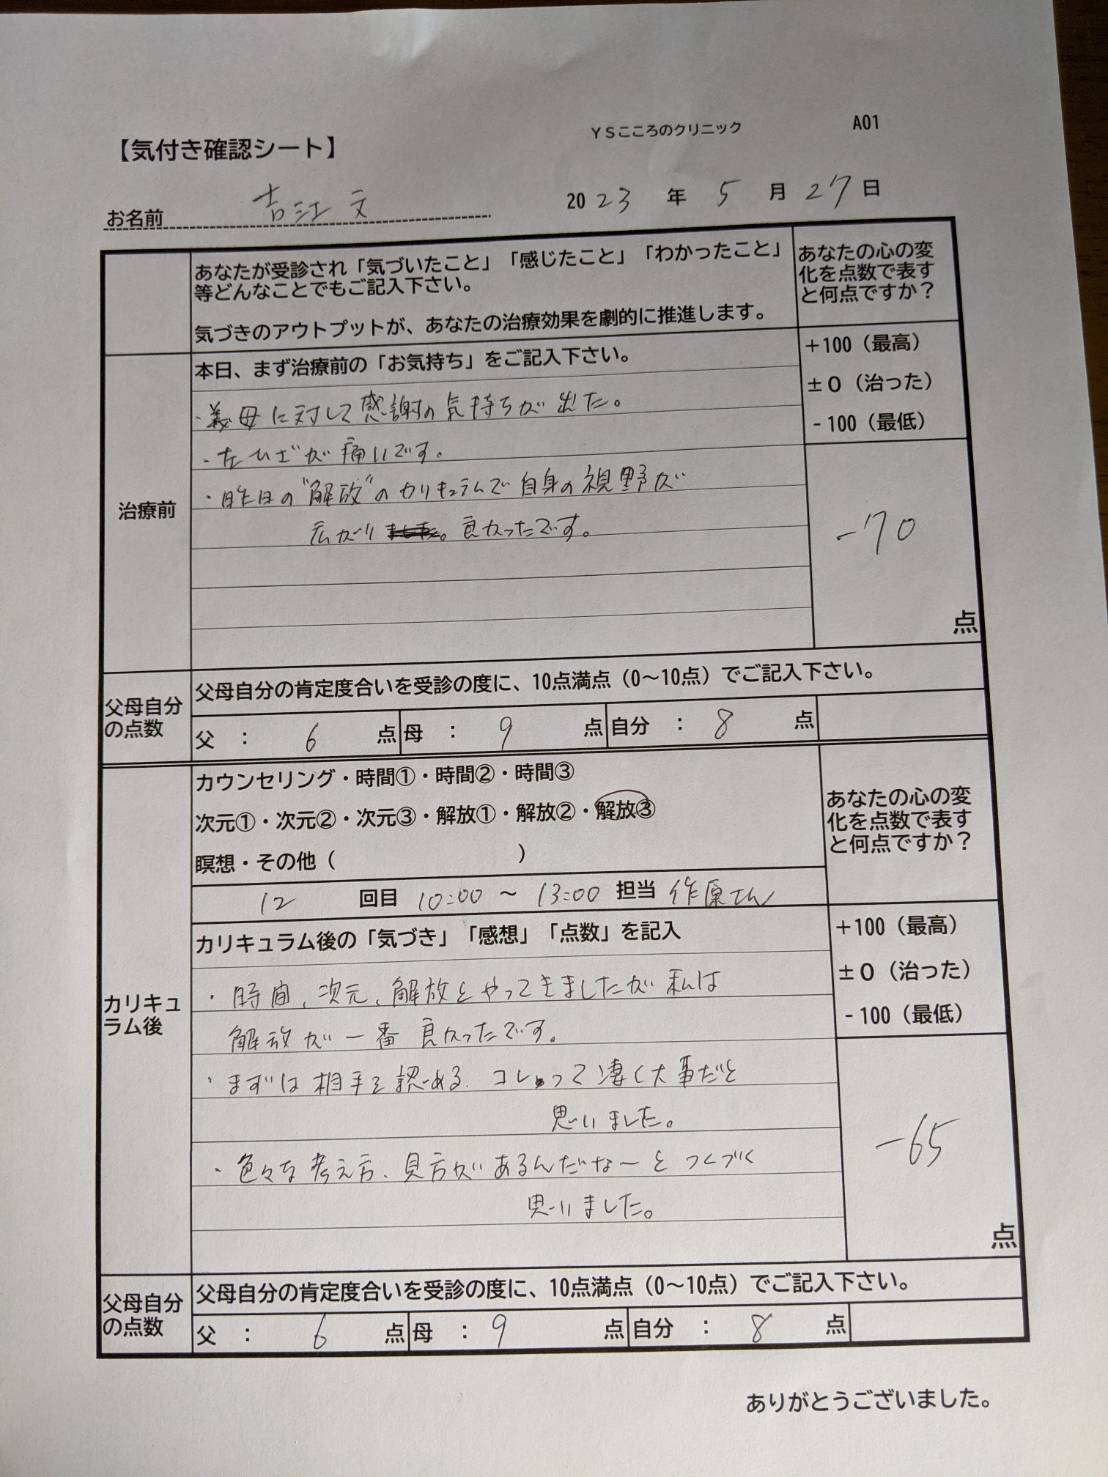 【気付き確認シート】
YSこころのクリニック
A01
お名前 吉江 文
2023年5月27日
あなたが受診され「気づいたこと」「感じたこと」「わかったこと」
等どんなことでもご記入下さい。
気づきのアウトプットが、あなたの治療効果を劇的に推進します。
あなたの心の変
化を点数で表す
と何点ですか？
治療前
本日、まず治療前の「お気持ち」をご記入下さい。
・義母に対して感謝の気持ちが出た。
・左ヒザが痛いです。
・昨日の"解放"のカリキュラムで自身の視野が
広がり 良かったです。
+100（最高）
±0（治った）
-100（最低）
-70
点
父母自分
の点数
父母自分の肯定度合いを受診の度に、10点満点（0～10点）でご記入下さい。
父 ： 6 点 母 ： 9 点 自分 ： 8 点
カリキュ
ラム後
カウンセリング・時間①・時間②・時間③
次元①・次元②・次元③・解放①・解放②・解放③
瞑想・その他（ ）
あなたの心の変
化を点数で表す
と何点ですか？
12 回目 10:00 ～ 13:00 担当 作原さん
カリキュラム後の「気づき」「感想」「点数」を記入
・時間、次元、解放とやってきましたが私は
解放が一番良かったです。
・まずは相手を認める。コレって凄く大事だと
思いました。
・色々な考え方、見方があるんだなーとつくづく
思いました。
+100（最高）
±0（治った）
-100（最低）
-65
点
父母自分
の点数
父母自分の肯定度合いを受診の度に、10点満点（0～10点）でご記入下さい。
父 ： 6 点 母 ： 9 点 自分 ： 8 点
ありがとうございました。